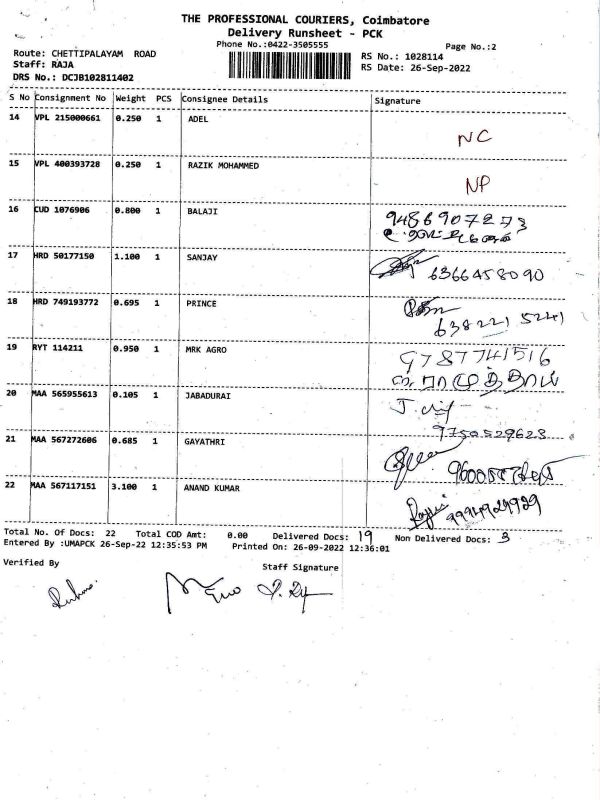 THE PROFESSIONAL COURIERS, Coimbatore
Delivery Runsheet - PCK
Phone No.:0422-3505555
Page No.:2
Route: CHETTIPALAYAM ROAD
RS No.: 1028114
Staff: RAJA
RS Date: 26-Sep-2022
DRS No.: DCJB102811402
S No Consignment No Weight PCS Consignee Details Signature
14 VPL 215000661 0.250 1 ADEL NC
15 VPL 400393728 0.250 1 RAZIK MOHAMMED NP
16 CUD 1076906 0.800 1 BALAJI 9486907273
17 HRD 50177150 1.100 1 SANJAY 6366458090
18 HRD 749193772 0.695 1 PRINCE 638221 5241
19 RYT 114211 0.950 1 MRK AGRO 9787741516
20 MAA 565955613 0.105 1 JABADURAI
9750529623
21 MAA 567272606 0.685 1 GAYATHRI
22 MAA 567117151 3.100 1 ANAND KUMAR 9994929929
Total No. Of Docs: 22 Total COD Amt: 0.00 Delivered Docs: 19 Non Delivered Docs: 3
Entered By :UMAPCK 26-Sep-22 12:35:53 PM Printed On: 26-09-2022 12:36:01
Verified By Staff Signature